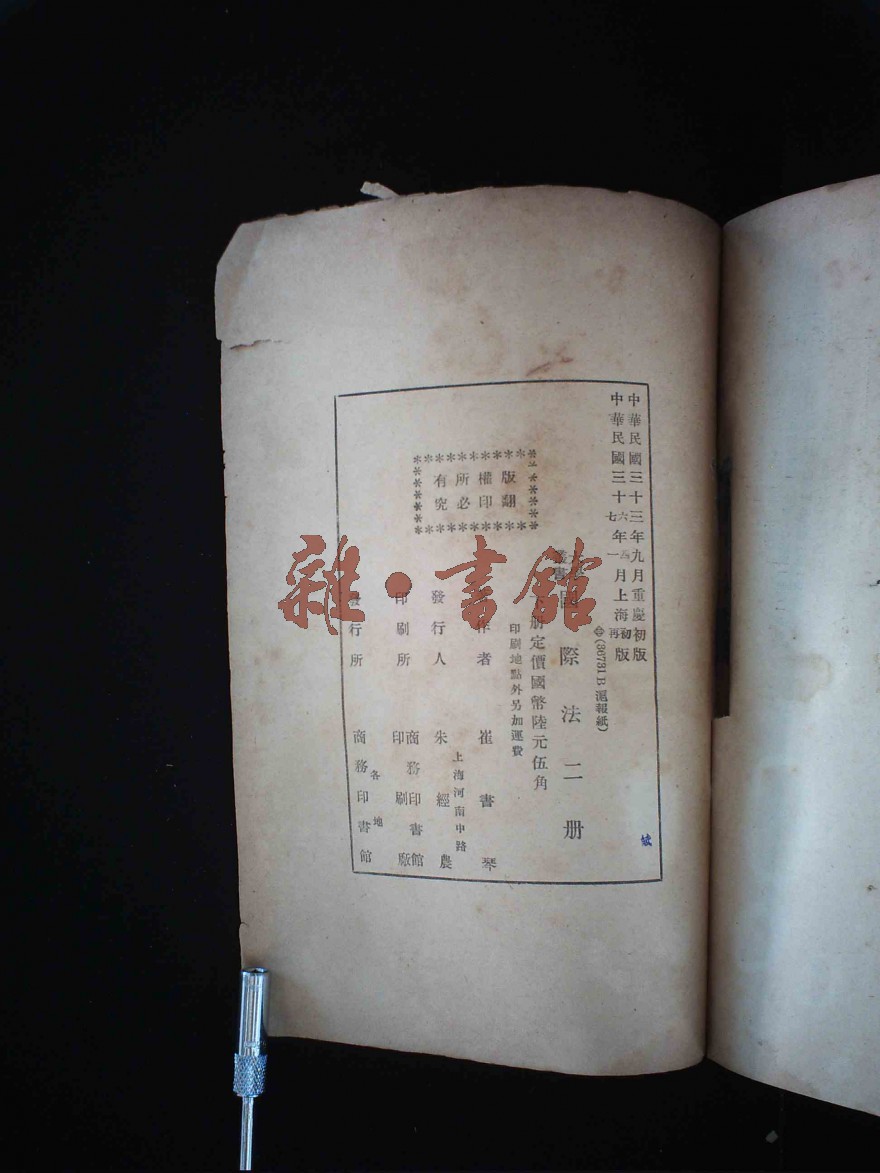 中華民國三十三年九月重慶初版
中華民國三十六年四月上海初版
七 一 再
(36731 B 滬報紙)
國際法二册
册定價國幣陸元伍角
印刷地點外另加運費
版權所有
翻印必究
作者 崔書琴
發行人 朱經農
上海河南中路
印刷所 商務印書館
印刷廠
發行所 商務印書館
各地
斌
雜·書館